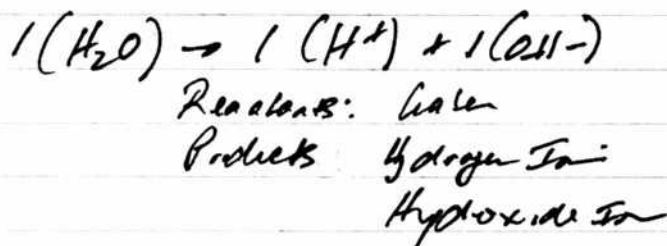 1(H₂O) → 1 (H⁺) + 1(OH⁻)
Reactants: Water
Products Hydrogen Ion
Hydroxide Ion